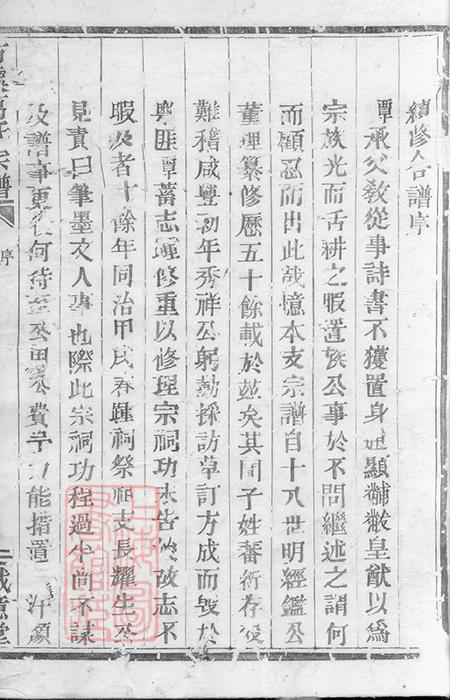 續修合譜序
覃承父教從事詩書不獲置身通顯黼黻皇猷以為
宗族光而舌耕之暇置族公事於不問繼述之謂何
而顧忍而出此哉憶本支宗譜自十八世明經鑑公
董理纂修歷五十餘載於茲矣其間子姓蕃衍存歿
難稽咸豐初年秀祥公躬勤採訪草訂方成而毀於
匪覃蓄志踵修重以修理宗祠功未告竣故志不
暇及者十餘年同治甲戌春踵祠祭祖支長耀生公
見責曰筆墨文人事也際此宗祠功程過半尚不謀
及譜事更復何待至公田公費予力能措置
宗譜
序